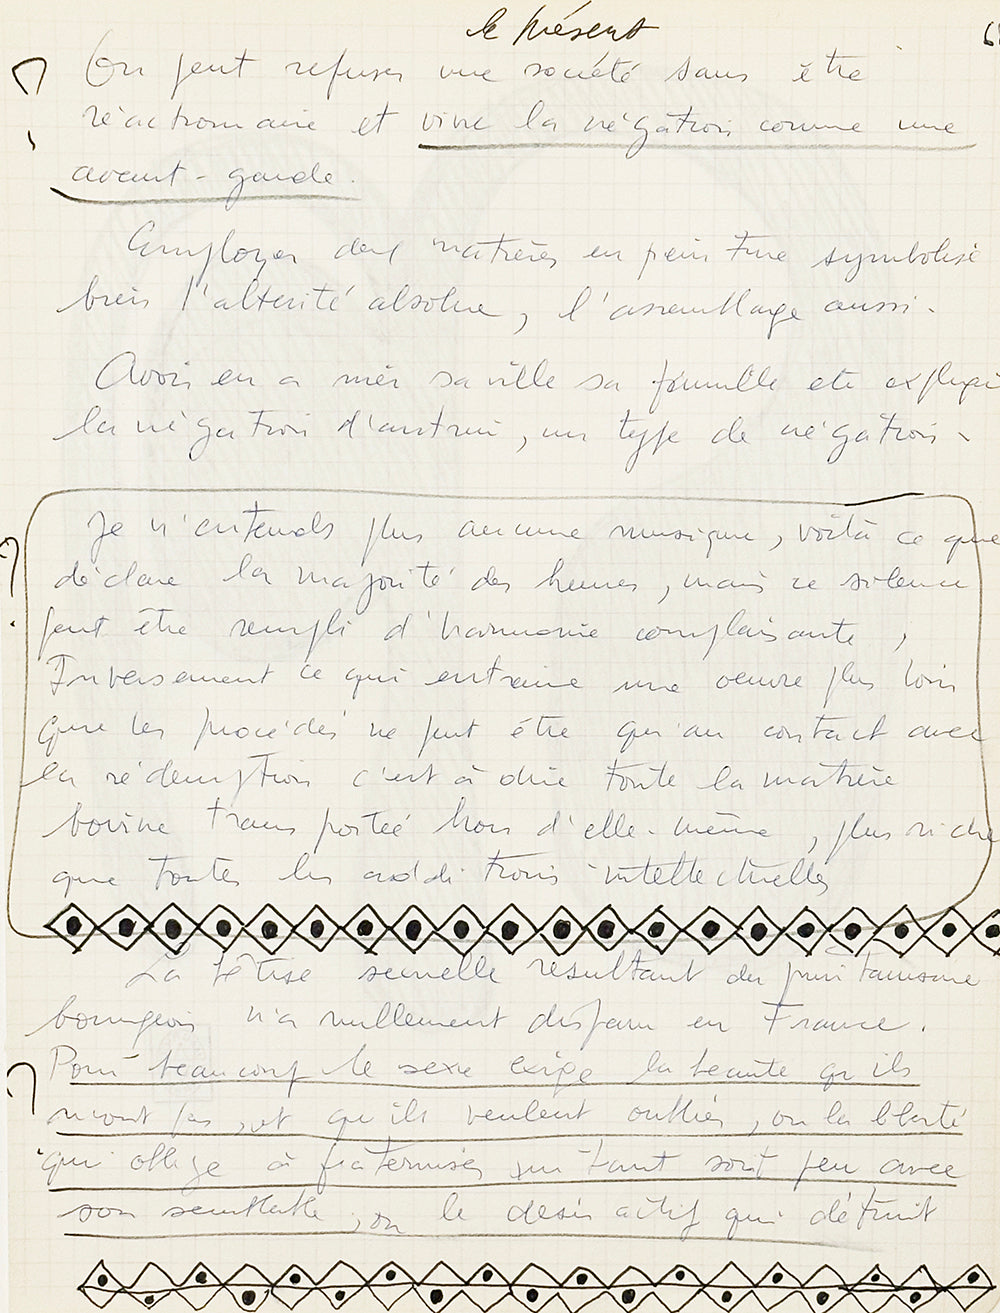 le présent
On peut refuser une société sans être
réactionnaire et vivre la négation comme une
avant-garde.
Employer des matières en peinture symbolise
bien l'altérité absolue, l'assemblage aussi.
Avoir eu a sa ville sa famille etc
la négation d'autrui, un type de négation.
Je n'entends plus aucune musique, voilà ce que
déclare la majorité des heures, mais ce silence
peut être rempli d'harmonie complaisante,
Inversement ce qui entraine une oeuvre plus loin
que les procédés ne peut être qu'au contact avec
la rédemption c'est à dire toute la matière
bovine transportée hors d'elle-même, plus riche
que toutes les additions intellectuelles
La bêtise sexuelle résultant du puritanisme
bourgeois n'a nullement disparu en France.
Pour beaucoup le sexe exige la beauté qu'ils
n'ont pas, et qu'ils veulent oublier, ou la
qui oblige à fraterniser un tant soit peu avec
son semblable, ou le désir actif qui détruit